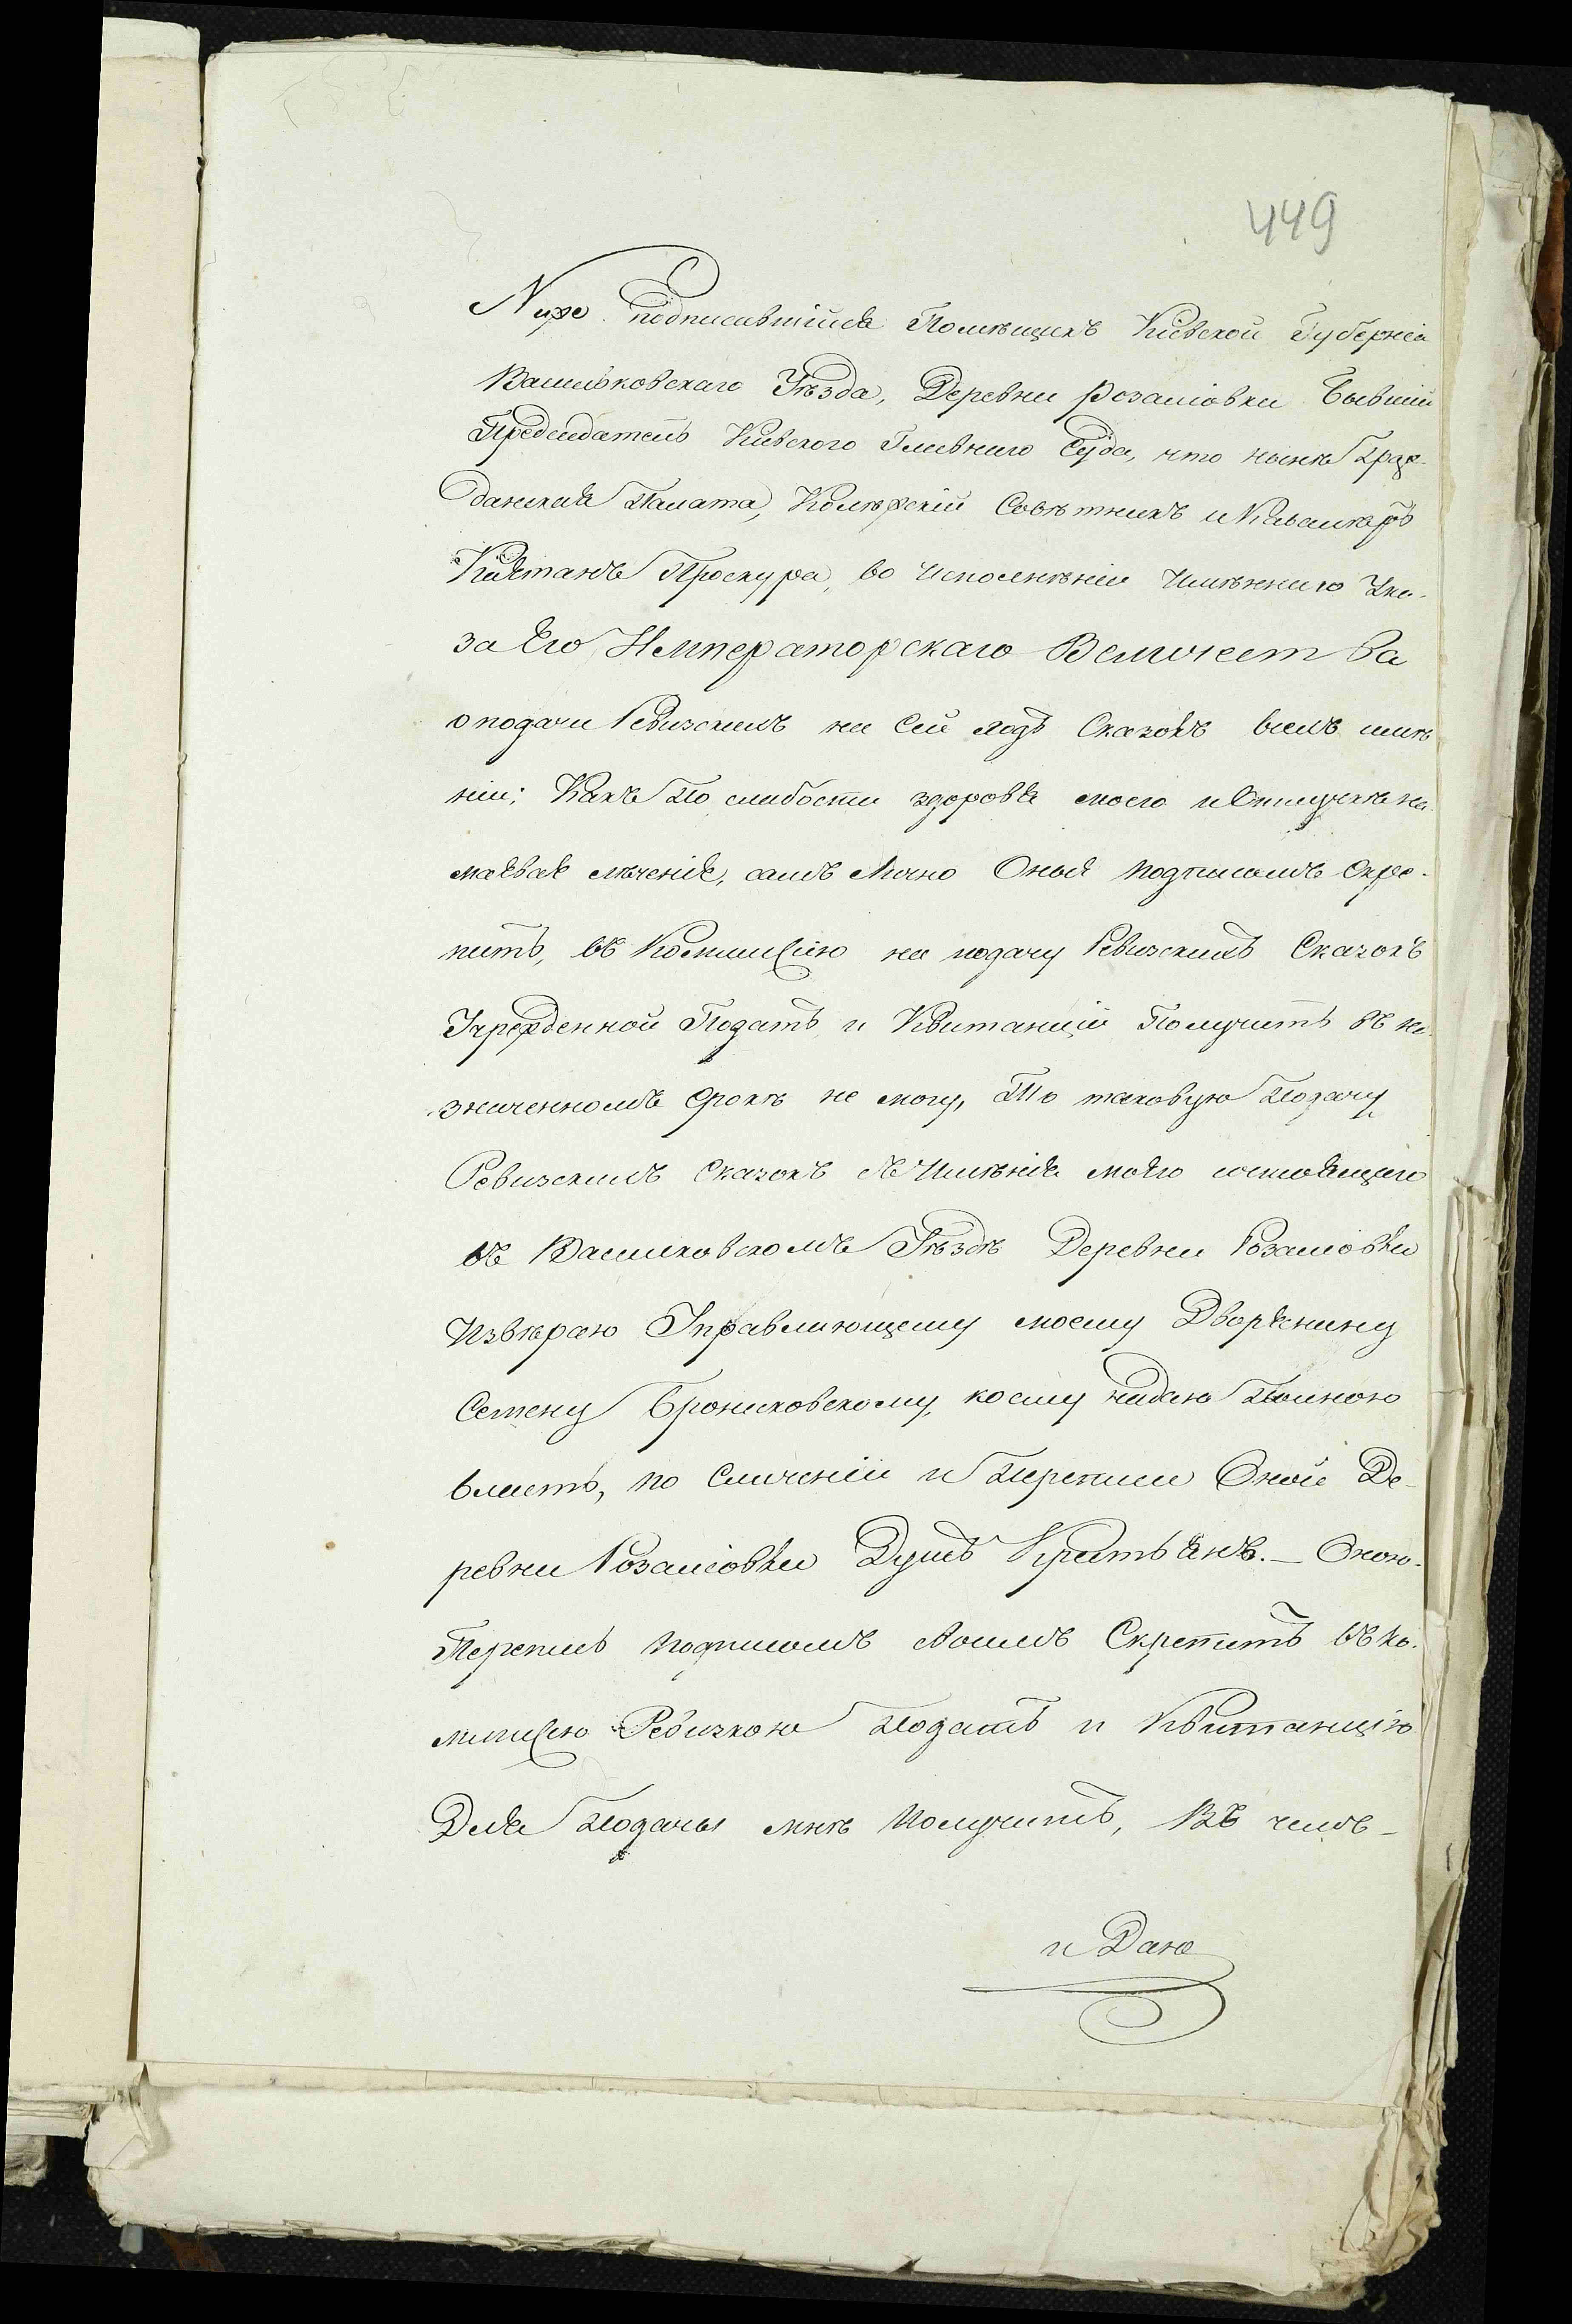 449
Ниже подписавшийся Помѣщикъ Кіевской Губерніи
Васильковскаго Уѣзда, Деревни Розаліовки Бывшій
Председатель Кіевского Главнаго Суда, что нынѣ Граж-
данская Палата, Колѣжскій Совѣтникъ и Кавалѣръ
Каэтанъ Проскура, во Исполнѣніи Имѣнного Ука-
за Его Императорскаго Величества
о подачи Ревизскихъ на Сей годъ Сказокъ всемъ имѣ
ніи; Какъ По слабости здоровя моего и
лѣченія, самъ Лично Оныя подписомъ Скре-
пить, въ Коммиссію на подачу Ревизскихъ Сказокъ
Учрежденной Подать и Квитанцій Получить въ на-
значенномъ Срокѣ не могу, То таковую Подачу
Ревизскихъ Сказокъ съ Имѣнія моего состоящаго
въ Василковскомъ Уѣздѣ Деревни Розаліовки
Извѣраю Управляющему моему Дворянину
Семену Брониковскому, коему надаю Полною
власть, по Сличеніи и Переписи Оной Де-
ревни Розаліовки Душъ Крестьянъ. — Оною-
Перепись подписомъ своимъ Скрепить въ ко-
миссію Ревизкою Подать и Квитанцію
Для Подачы мнѣ Получить, Въ чемъ-
и Даю